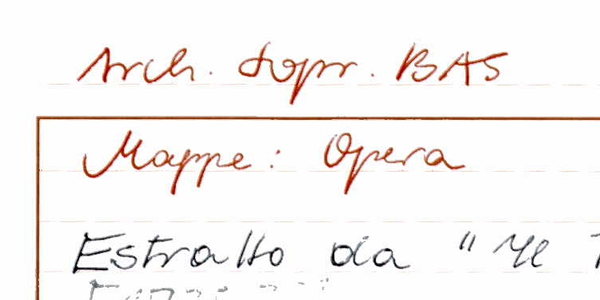 Arch. Sopr. BAS
Mappe: Opera
Estratto da "Il